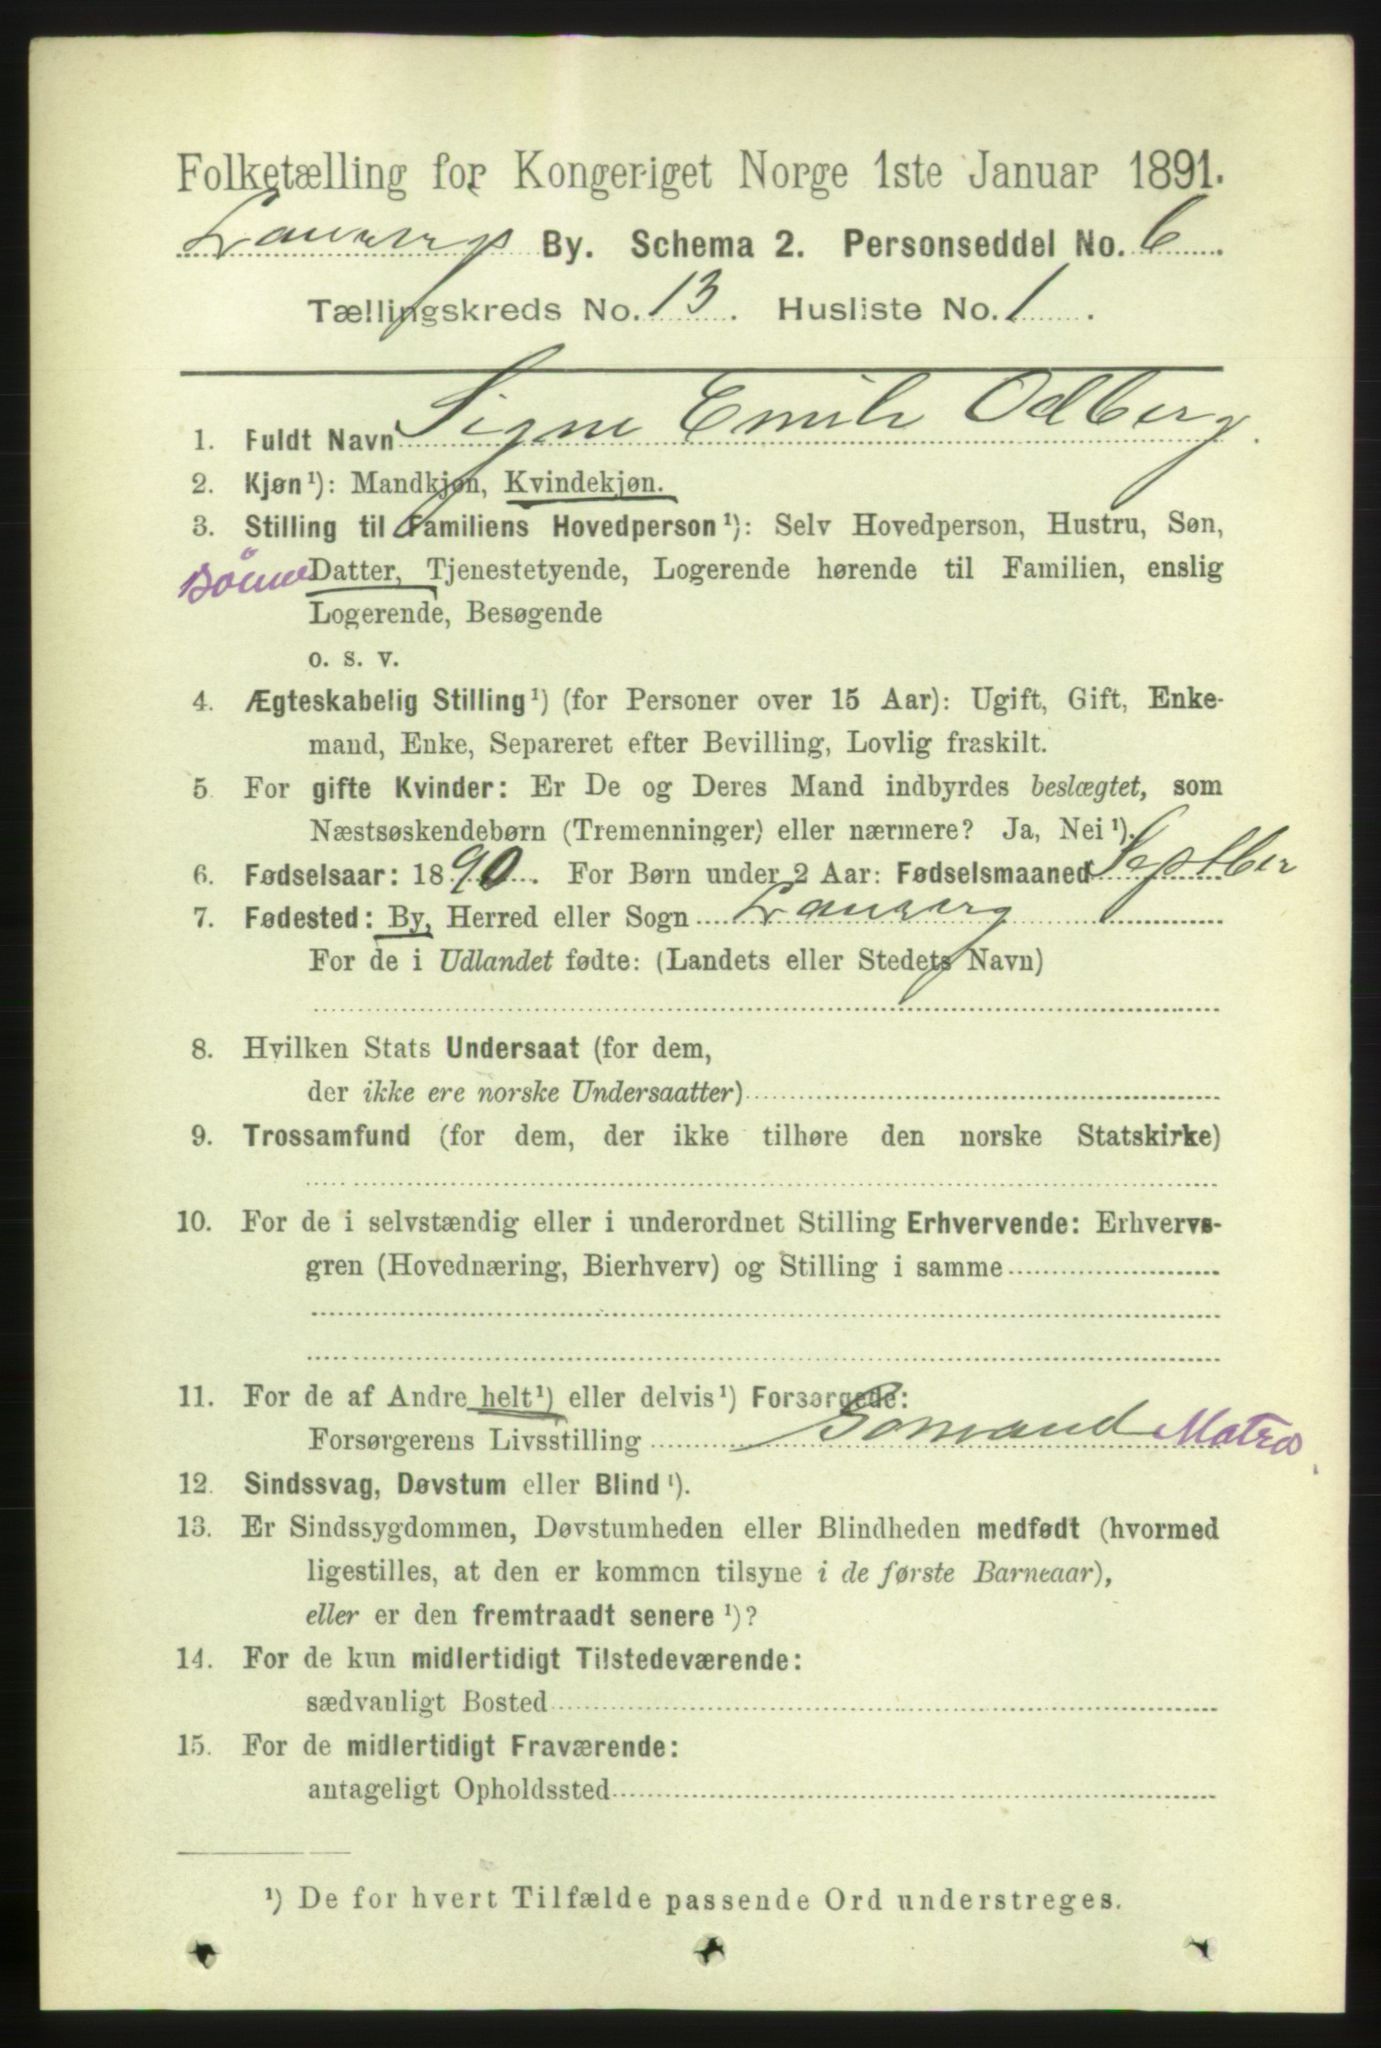 Folketælling for Kongeriget Norge 1ste Januar 1891.
Laurvig By. Schema 2. Personseddel No. 6
Tællingskreds No. 13. Husliste No. 1.
1. Fuldt Navn Signe Emilie Odberg.
2. Kjøn¹): Mandkjøn, Kvindekjøn.
3. Stilling til Familiens Hovedperson¹): Selv Hovedperson, Hustru, Søn,
Datter, Tjenestetyende, Logerende hørende til Familien, enslig
Logerende, Besøgende
o. s. v.
4. Ægteskabelig Stilling¹) (for Personer over 15 Aar): Ugift, Gift, Enke-
mand, Enke, Separeret efter Bevilling, Lovlig fraskilt.
5. For gifte Kvinder: Er De og Deres Mand indbyrdes beslægtet, som
Næstsøskendebørn (Tremenninger) eller nærmere? Ja, Nei¹).
6. Fødselsaar: 1890. For Børn under 2 Aar: Fødselsmaaned Septber
7. Fødested: By, Herred eller Sogn Laurvig
For de i Udlandet fødte: (Landets eller Stedets Navn)
8. Hvilken Stats Undersaat (for dem,
der ikke ere norske Undersaatter)
9. Trossamfund (for dem, der ikke tilhøre den norske Statskirke)
10. For de i selvstændig eller i underordnet Stilling Erhvervende: Erhvervs-
gren (Hovednæring, Bierhverv) og Stilling i samme
11. For de af Andre helt¹) eller delvis¹) Forsørgede:
Forsørgerens Livsstilling Sømand Matros
12. Sindssvag, Døvstum eller Blind¹).
13. Er Sindssygdommen, Døvstumheden eller Blindheden medfødt (hvormed
ligestilles, at den er kommen tilsyne i de første Barneaar),
eller er den fremtraadt senere¹)?
14. For de kun midlertidigt Tilstedeværende:
sædvanligt Bosted
15. For de midlertidigt Fraværende:
antageligt Opholdssted
¹) De for hvert Tilfælde passende Ord understreges.